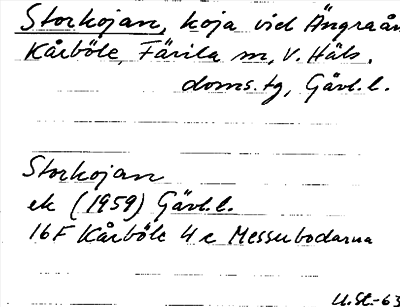 Storkojan, koja vid Ängraån
Kårböle, Färila sn, V. Häls.
doms.tg, Gävl.l.
Storkojan
ek (1959) Gävl.l.
16F Kårböle 4e Messubodarna
U.St.-63